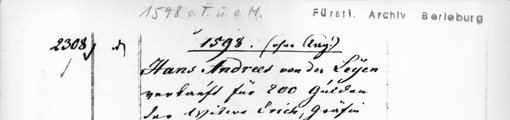 1598 o. T. u. o. M.
Fürstl. Archiv Berleburg
2308
1598. (ohne Tag)
Hans Andreas von der Leyen
verkauft für 200 Gulden
der Wittwe Erich, Gräfin